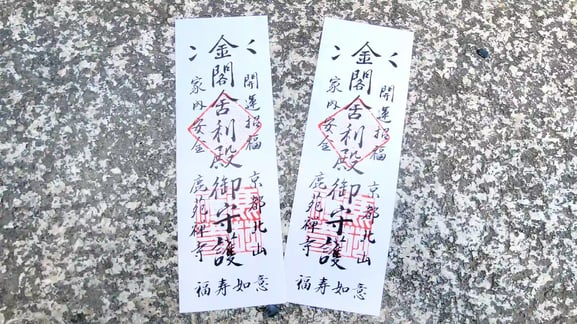 開運招福
京都北山
金閣舎利殿御守護
家内安全
鹿苑禅寺
福寿如意
開運招福
京都北山
金閣舎利殿御守護
家内安全
鹿苑禅寺
福寿如意